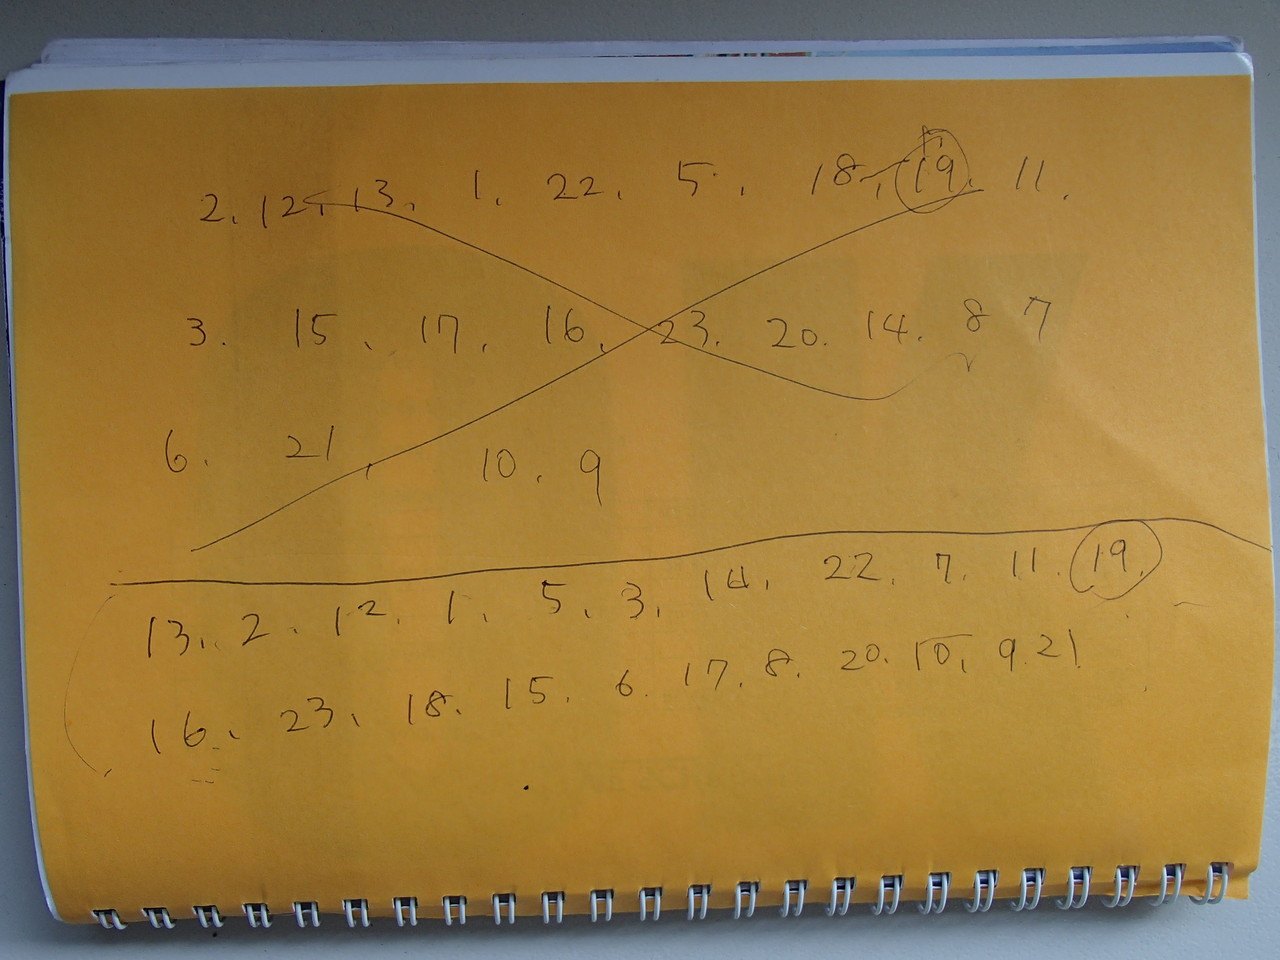 2. 12, 13, 1, 22, 5, 18, 19, 11.
3. 15, 17, 16, 23. 20. 14. 8 7
6. 21, 10. 9
13, 2, 12, 1, 5, 3, 14, 22, 7, 11, 19,
16, 23, 18, 15, 6. 17, 8, 20. 10, 9. 21